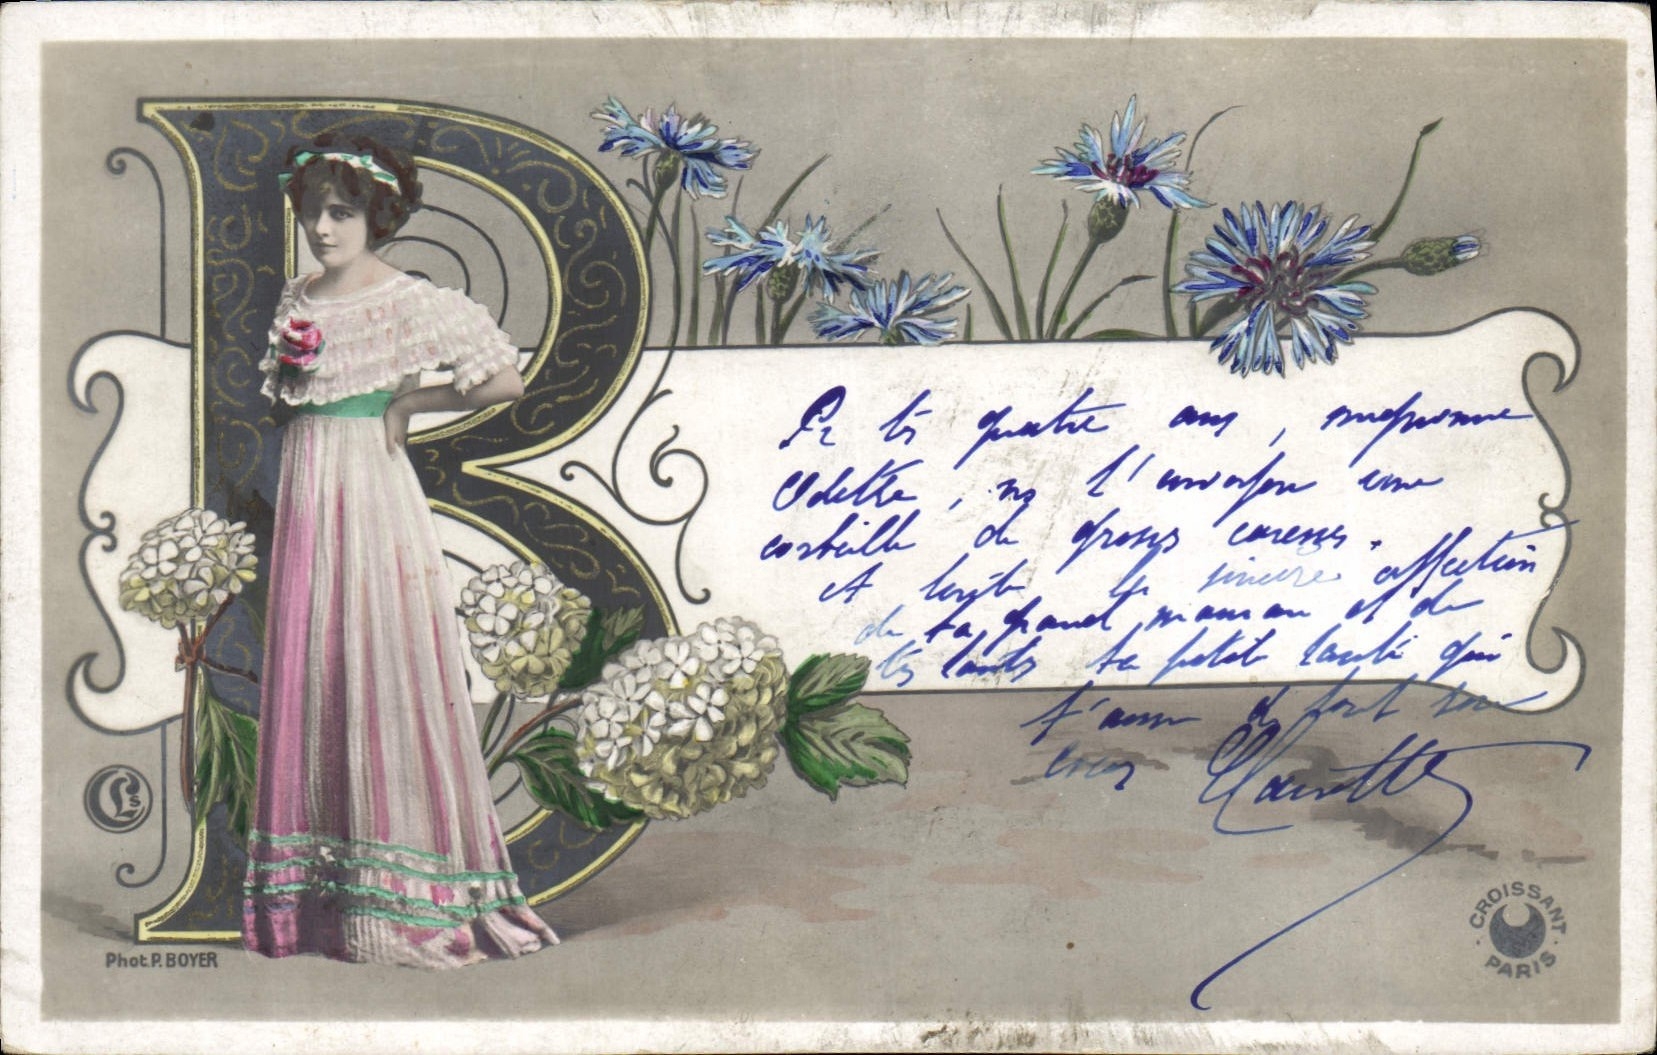 B
Pr tes quatre ans, mignonne
Odette, ns t'envoyons une
corbeille de grosses caresses.
et toute la sincère affection
de ta grand maman et de
tes tantes ta petite qui
t'aime de tout son
cœur
Phot. P. BOYER
CROISSANT
PARIS